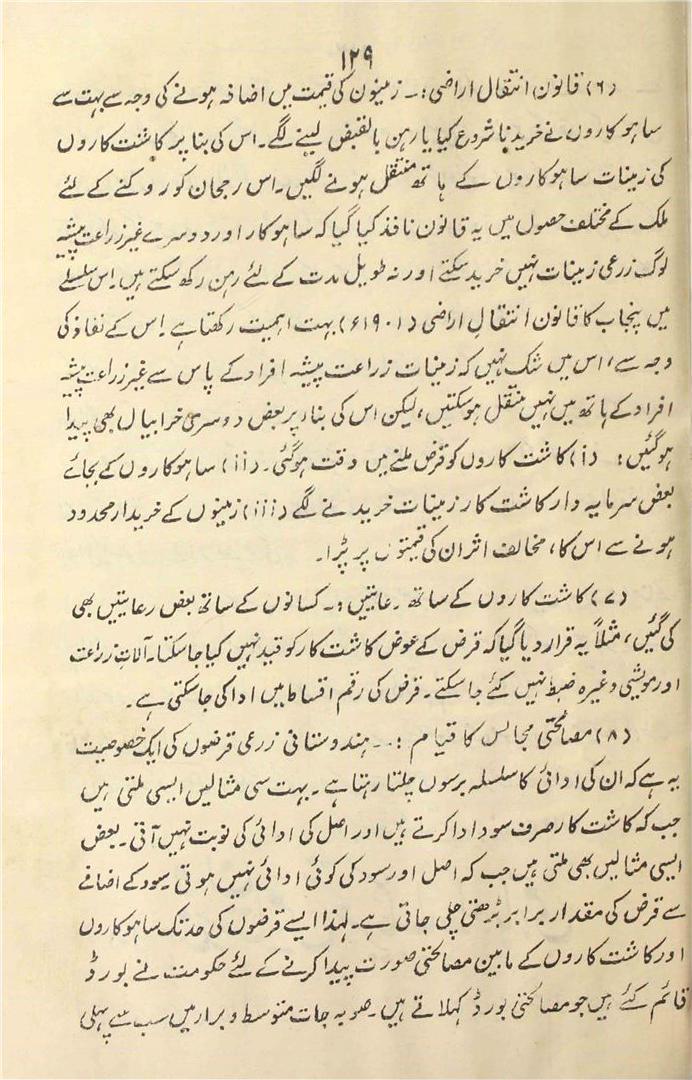 ۱۲۹
(۶) قانون انتقال اراضی :۔ زمینوں کی قیمت میں اضافہ ہونے کی وجہ سے بہت سے
ساہوکاروں نے خریدنا شروع کیا یا رہن بالقبض لینے لگے۔ اس کی بنا پر کاشت کاروں
کی زمینات ساہوکاروں کے ہاتھ منتقل ہونے لگیں۔ اس رجحان کو روکنے کے لئے
ملک کے مختلف حصوں میں یہ قانون نافذ کیا گیا کہ ساہوکار اور دوسرے غیر زراعت پیشہ
لوگ زرعی زمینات نہیں خرید سکتے اور نہ طویل مدت کے لئے رہن رکھ سکتے ہیں۔ اس سلسلے
میں پنجاب کا قانون انتقالِ اراضی (۱۹۰۱ء) بہت اہمیت رکھتا ہے۔ اس کے نفاذ کی
وجہ سے، اس میں شک نہیں کہ زمینات زراعت پیشہ افراد کے پاس سے غیر زراعت پیشہ
افراد کے ہاتھ میں نہیں منتقل ہوسکتیں، لیکن اس کی بنا پر بعض دوسری خرابیاں بھی پیدا
ہوگئیں: (i) کاشت کاروں کو قرض ملنے میں دقت ہوگئی۔ (ii) ساہوکاروں کے بجائے
بعض سرمایہ دار کاشت کار زمینات خریدنے لگے (iii) زمینوں کے خریدار محدود
ہونے سے اس کا، مخالف اثر ان کی قیمتوں پر پڑا۔
(۷) کاشت کاروں کے ساتھ رعایتیں :۔ کسانوں کے ساتھ بعض رعایتیں بھی
کی گئیں، مثلاً یہ قرار دیا گیا کہ قرض کے عوض کاشت کار کو قید نہیں کیا جاسکتا۔ آلاتِ زراعت
اور مویشی وغیرہ ضبط نہیں کئے جاسکتے۔ قرض کی رقم اقساط میں ادا کی جاسکتی ہے۔
(۸) مصالحتی مجالس کا قیام :۔ ہندوستانی زرعی قرضوں کی ایک خصوصیت
یہ ہے کہ ان کی ادائی کا سلسلہ برسوں چلتا رہتا ہے۔ بہت سی مثالیں ایسی ملتی ہیں
جب کہ کاشت کار صرف سود ادا کرتے ہیں اور اصل کی ادائی کی نوبت نہیں آتی۔ بعض
ایسی مثالیں بھی ملتی ہیں جب کہ اصل اور سود کی کوئی ادائی نہیں ہوتی۔ سود کے اضافے
سے قرض کی مقدار برابر بڑھتی چلی جاتی ہے۔ لہٰذا ایسے قرضوں کی حد تک ساہوکاروں
اور کاشت کاروں کے مابین مصالحتی صورت پیدا کرنے کے لئے حکومت نے بورڈ
قائم کئے ہیں جو مصالحتی بورڈ کہلاتے ہیں۔ صوبہ جات متوسط و برار میں سب سے پہلی